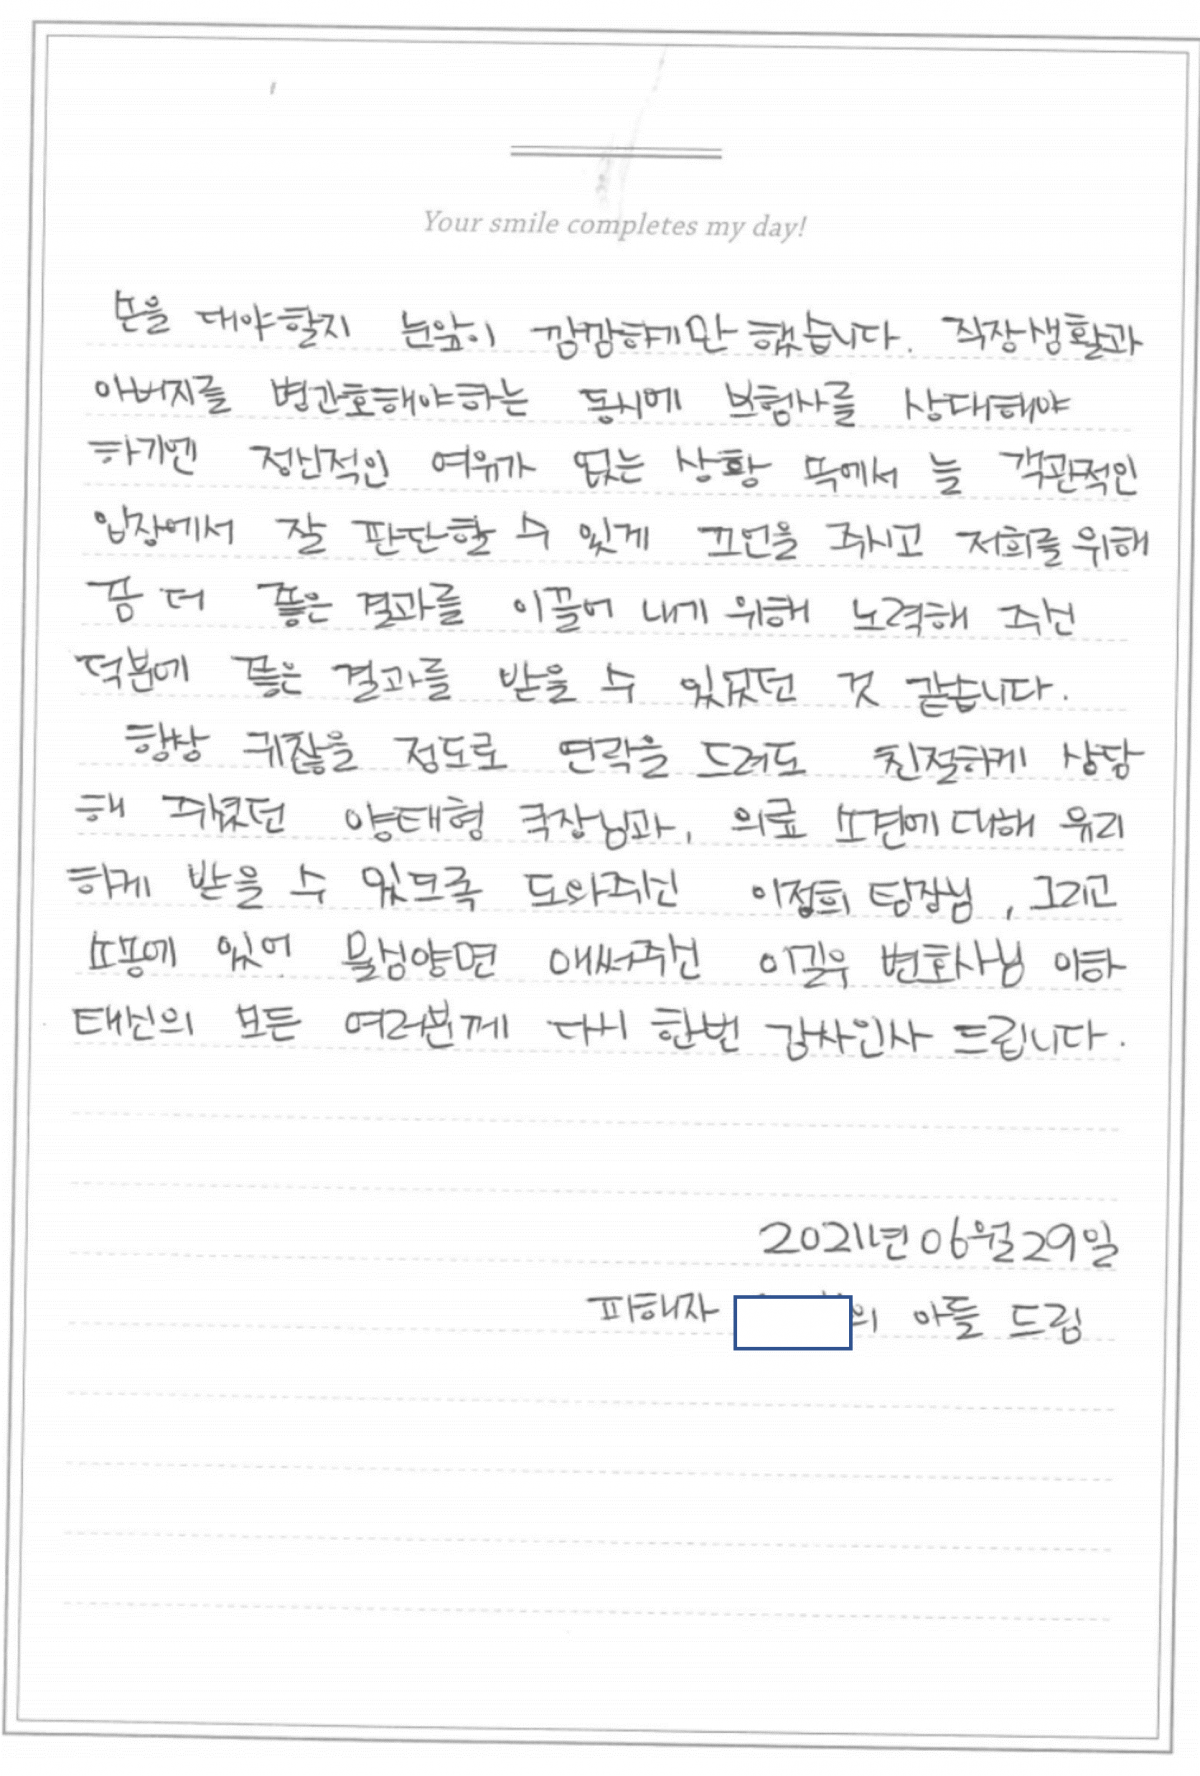 Your smile completes my day!
손을 대야할지 눈앞이 깜깜하기만 했습니다. 직장생활과
아버지를 병간호해야하는 동시에 보험사를 상대해야
하기엔 정신적인 여유가 없는 상황 속에서 늘 객관적인
입장에서 잘 판단할 수 있게 조언을 주시고 저희를 위해
좀 더 좋은 결과를 이끌어 내기 위해 노력해 주신
덕분에 좋은 결과를 받을 수 있었던 것 같습니다.
항상 귀찮을 정도로 연락을 드려도 친절하게 상담
해 주셨던 양태형 국장님과, 의료 소견에 대해 유리
하게 받을 수 있도록 도와주신 이정희 팀장님, 그리고
소송에 있어 물심양면 애써주신 이길우 변호사님 이하
태신의 모든 여러분께 다시 한번 감사인사 드립니다.
2021년 06월 29일
피해자 의 아들 드림